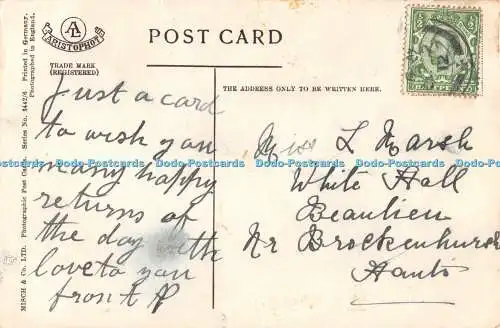 POST CARD
ARISTOPHOT
TRADE MARK
(REGISTERED)
THE ADDRESS ONLY TO BE WRITTEN HERE.
Just a card
to wish you
many happy
returns of
the day with
love to you
from
Miss L Marsh
White Hall
Beaulieu
Nr Brockenhurst
Hants
MISCH & CO., LTD. Photographic Post Cards. Series No. 444/4 Printed in Germany.
Photographed in England.
Dodo-Postcards Dodo-Postcards Dodo-Postcards Dodo-Postcards Dodo-Postcards